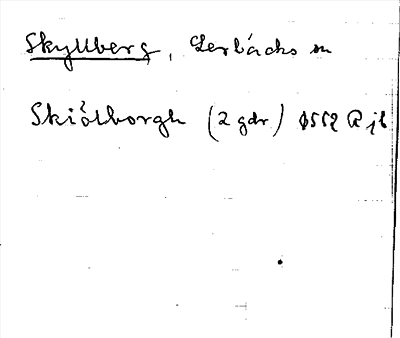 Skyllberg, Lerbäcks sn
Skiólborgh (2 gdr) 1552 R jb